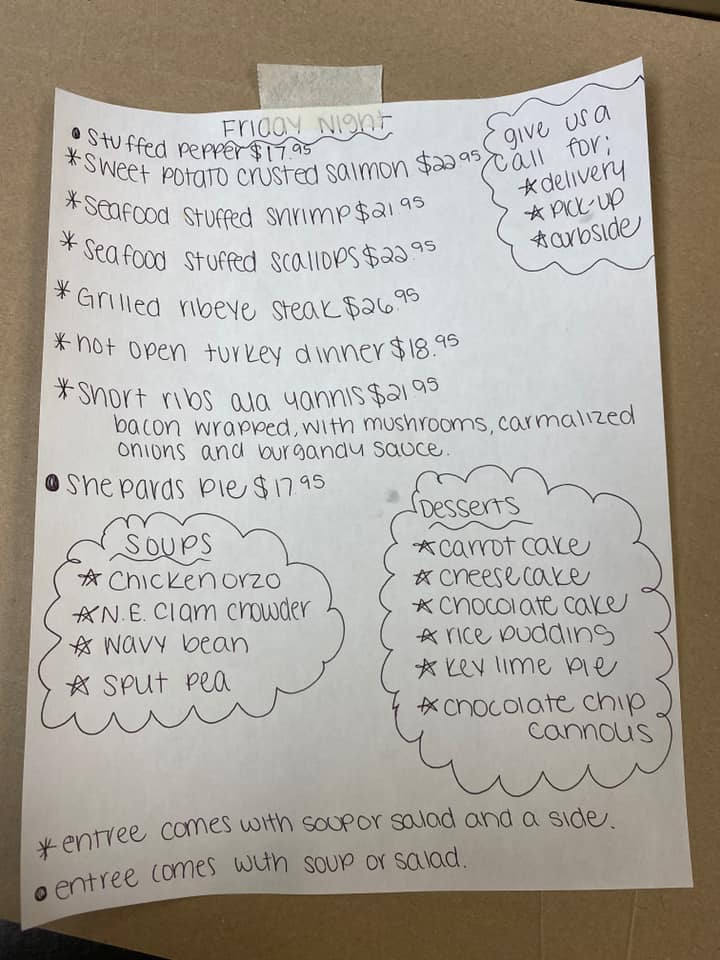 Friday Night
• Stuffed pepper $17.95
* Sweet potato crusted salmon $22.95
* Seafood stuffed shrimp $21.95
* Seafood stuffed scallops $22.95
* Grilled ribeye steak $26.95
* hot open turkey dinner $18.95
* Short ribs ala yannis $21.95
bacon wrapped, with mushrooms, carmalized
onions and burgandy sauce.
• Shepards pie $17.95
give us a
call for:
☆ delivery
☆ pick-up
☆ curbside
Soups
☆ Chicken orzo
☆ N.E. Clam chowder
☆ Navy bean
☆ Split pea
Desserts
☆ carrot cake
☆ cheese cake
☆ chocolate cake
☆ rice pudding
☆ key lime pie
☆ chocolate chip
cannolis
* entree comes with soup or salad and a side.
• entree comes with soup or salad.